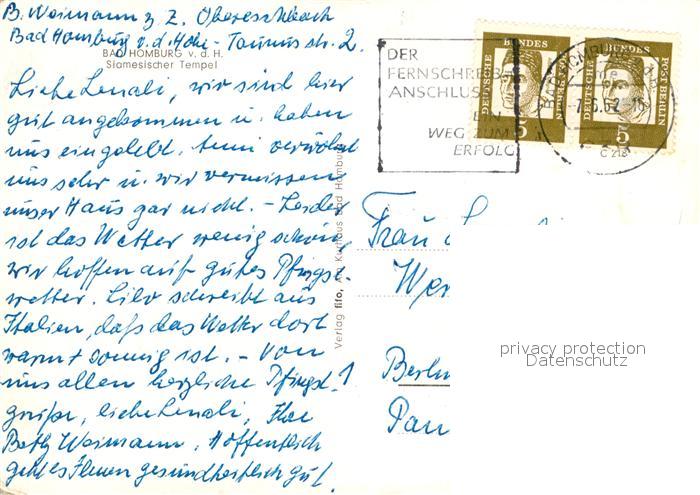 B. Weimann z. Z. Obereschbach
Bad Homburg v. d. Höhe - Taunus str. 2.
BAD HOMBURG v. d. H.
Siamesischer Tempel
Liebe Lenali, wir sind hier
gut angekommen u. haben
uns eingelebt. Anni verwöhnt
uns sehr u. wir vermissen
unser Haus gar nicht. - Leider
ist das Wetter wenig schön,
wir hoffen auf gutes Pfingst-
wetter. Lilo schreibt aus
Italien, daß das Wetter dort
warm + sonnig ist. - Von
uns allen herzliche Pfingst-
grüße, liebe Lenali, Ihre
Betty Weimann. Hoffentlich
geht es Ihnen gesundheitlich gut.
Verlag fifo, Am Kurhaus Bad Homburg
DER
FERNSCHREIB-
ANSCHLUSS
EIN
WEG ZUM
ERFOLG
DEUTSCHE BUNDES POST BERLIN
5
DEUTSCHE BUNDES POST BERLIN
5
Frau
Wei
Berlin
privacy protection
Datenschutz